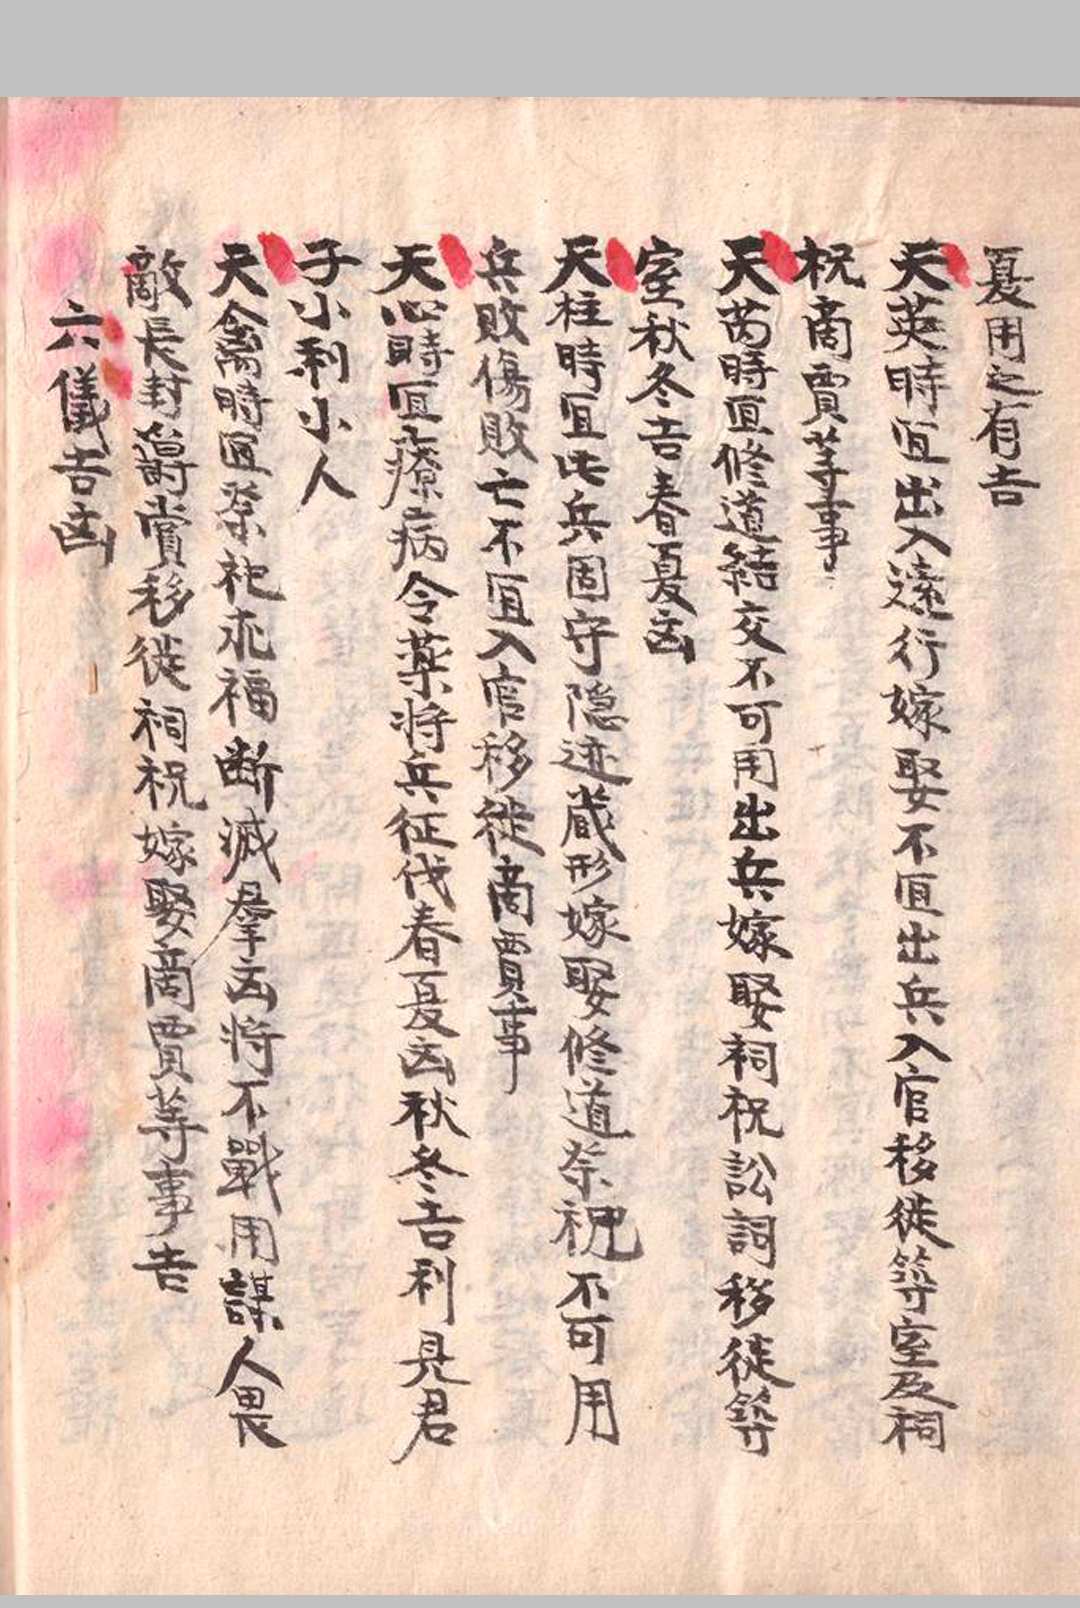 夏用之有吉
天英時宜出入遠行嫁娶不宜出兵入官移徙筭室及祠
祝商賈等事
天芮時宜修道結交不可用出兵嫁娶祠祝訟詞移徙筭
室秋冬吉春夏凶
天柱時宜屯兵固守隐迹藏形嫁娶修道祭祀不可用
兵敗傷敗亡不宜入官移徙商賈事
天心時宜療病令藥將兵征伐春夏凶秋冬吉利見君
子小利小人
天禽時宜祭祀求福断滅羣凶將不戰用謀人畏
敵長封爵賞移徙祠祝嫁娶商賈等事吉
六儀吉凶